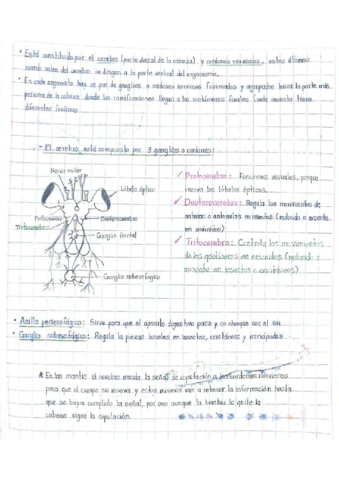 • Está constituido por el cerebro (parte dorsal de la cabeza) y cordones nerviosos, estos últimos
cuando salen del cerebro se dirigen a la parte ventral del organismo.
• En cada segmento hay un par de ganglios o cordones nerviosos fusionados y agrupados hacia la parte más
próxima de la cabeza donde las ramificaciones llegan a los metámeros finales (cada insecto tiene
diferentes fusiones
- El cerebro, está compuesto por 3 ganglios o cordones:
Nervio ocular
Lóbulo óptico
Protocerebro
Deuterocerebro
Tritocerebro
Ganglio frontal
Ganglio subesofágico
✓ Protocerebro: Funciones visuales, porque
inerva los lóbulos ópticos.
✓ Deuterocerebro: Regula los movimientos de
antenas o anténulas en insectos (reducido o ausente
en arácnidos)
✓ Tritocerebro: Controla los movimientos
de los quelíceros en arácnidos (reducido o
ausente en insectos o crustáceos)
• Anillo periesofágico: Sirve para que el aparato digestivo pase y no choque con el SN
• Ganglio subesofágico: Regula las piezas bucales en insectos, crustáceos y miriápodos
En las mantis el cerebro manda la señal de copulación a los cordones nerviosos
para que el cuerpo se mueva y estos mismos van a retener la información hasta
que se haya cumplido la señal, por eso aunque la hembra le quite la
cabeza sigue la copulación.